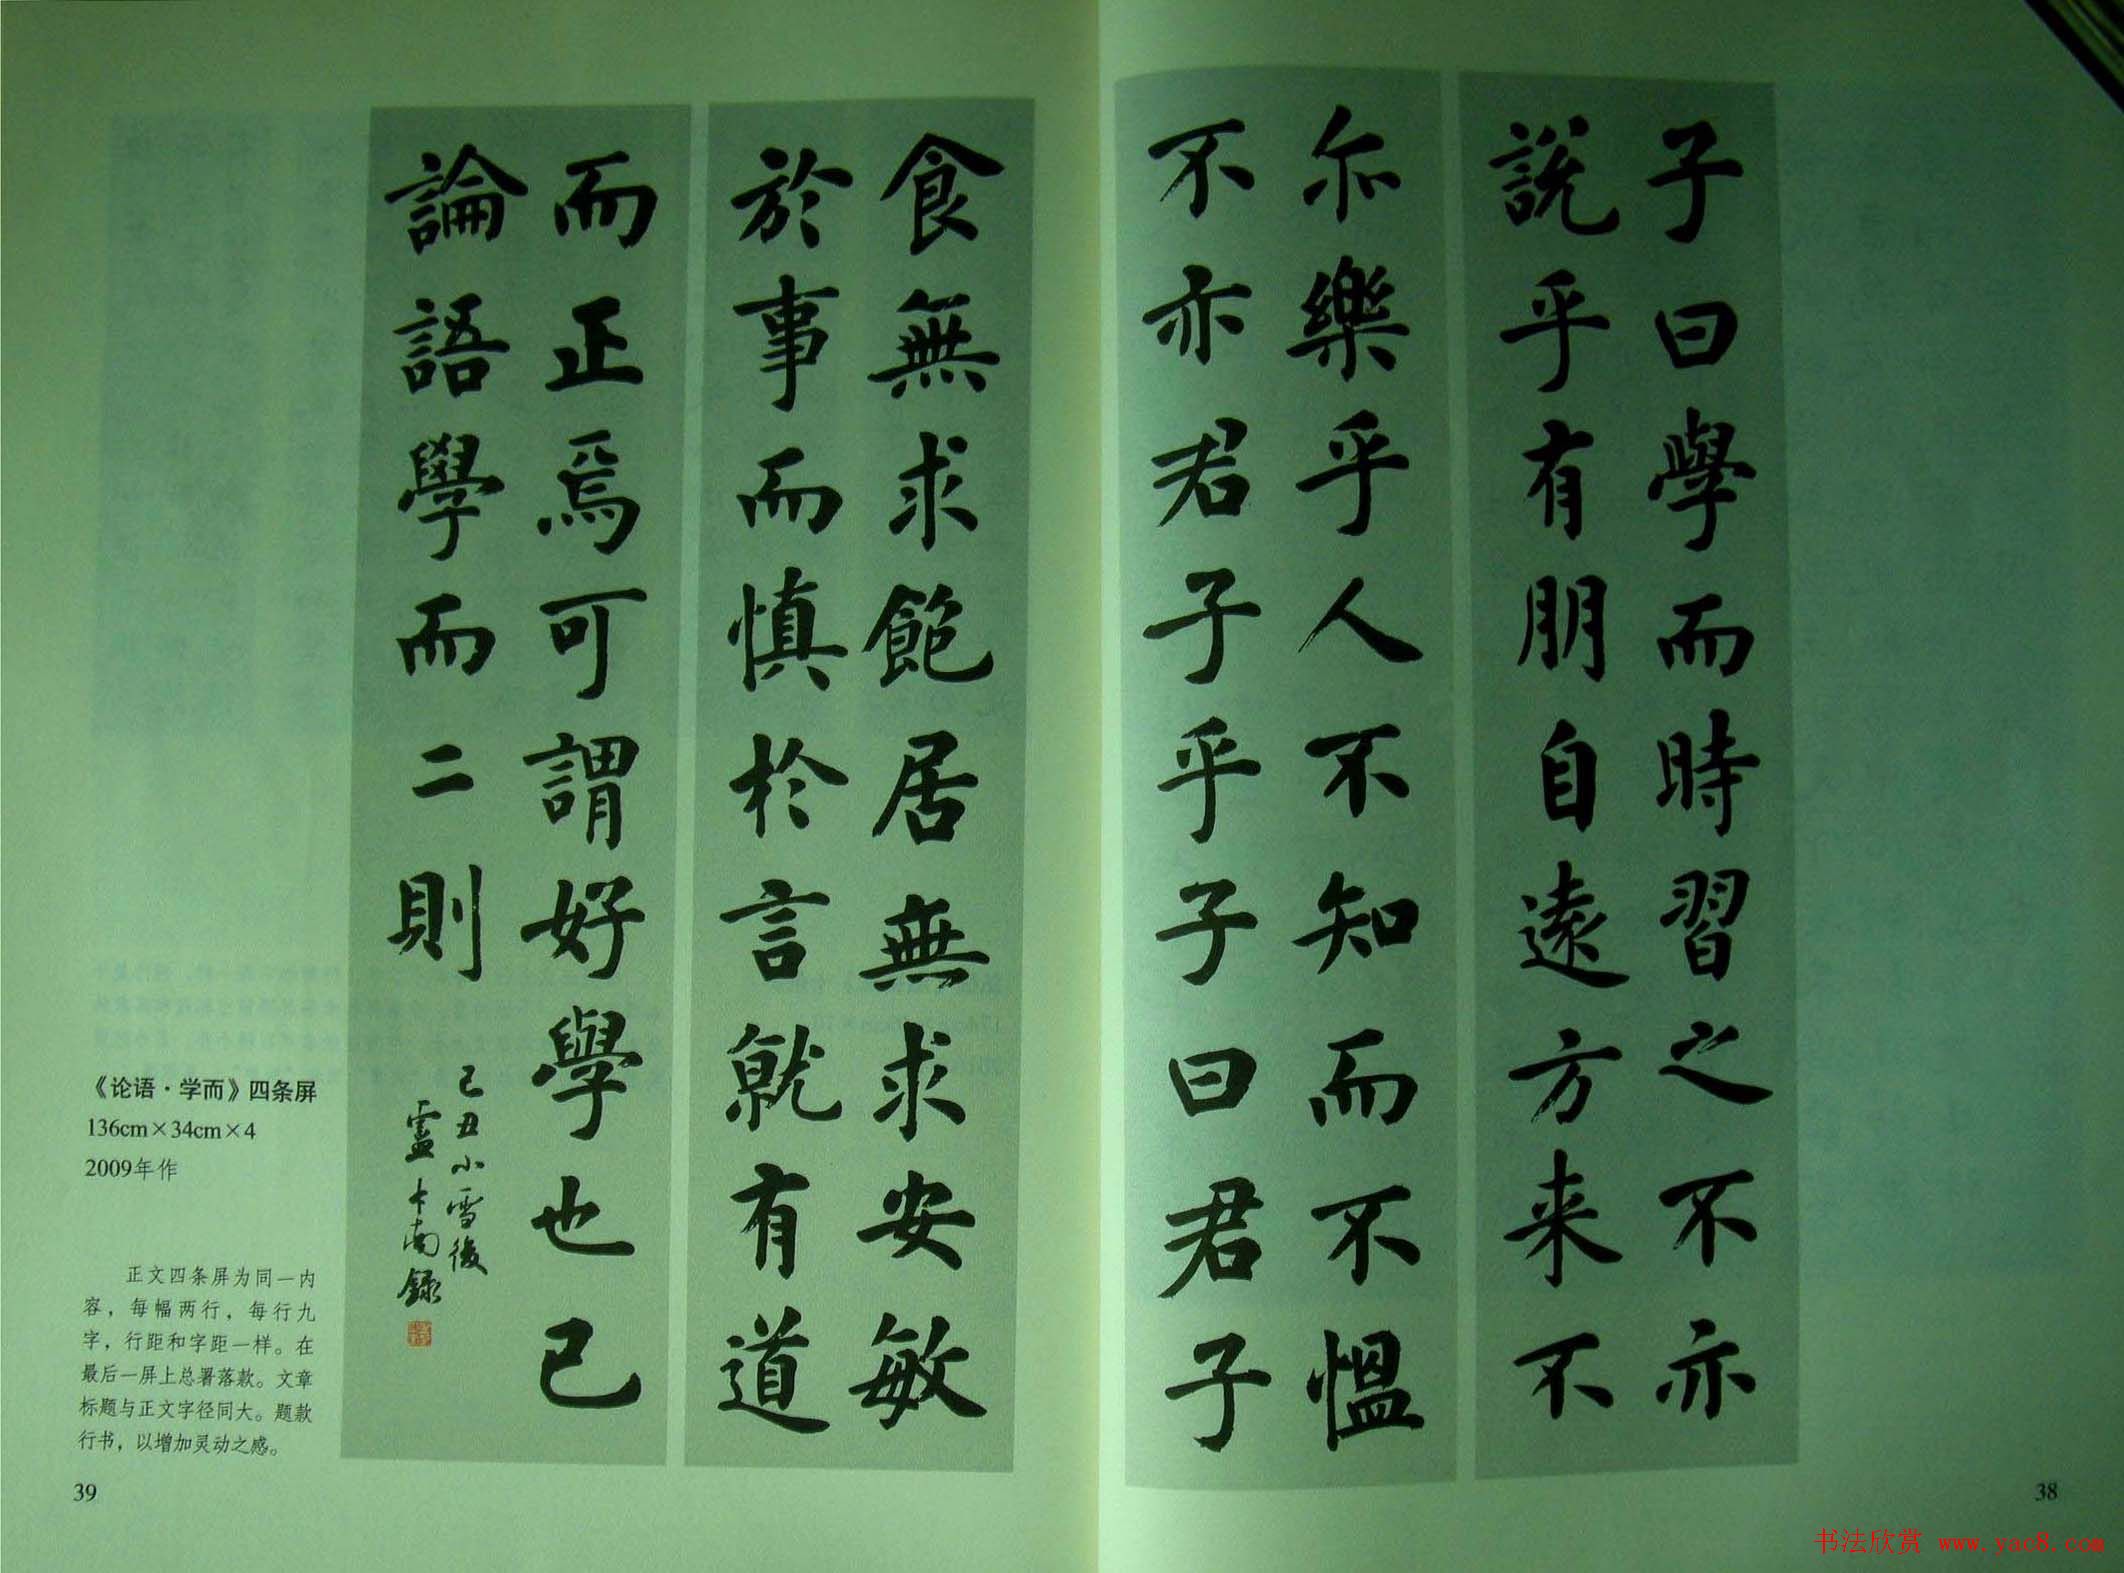 子曰學而時習之不亦
說乎有朋自遠方来不
亦樂乎人不知而不愠
不亦君子乎子曰君子
食無求飽居無求安敏
於事而慎於言就有道
而正焉可謂好學也已
論語學而二則
己丑小雪後
盧中南錄
《论语·学而》四条屏
136cm×34cm×4
2009年作
正文四条屏为同一内
容，每幅两行，每行九
字，行距和字距一样。在
最后一屏上总署落款。文章
标题与正文字径同大。题款
行书，以增加灵动之感。
39
38
书法欣赏 www.yac8.com